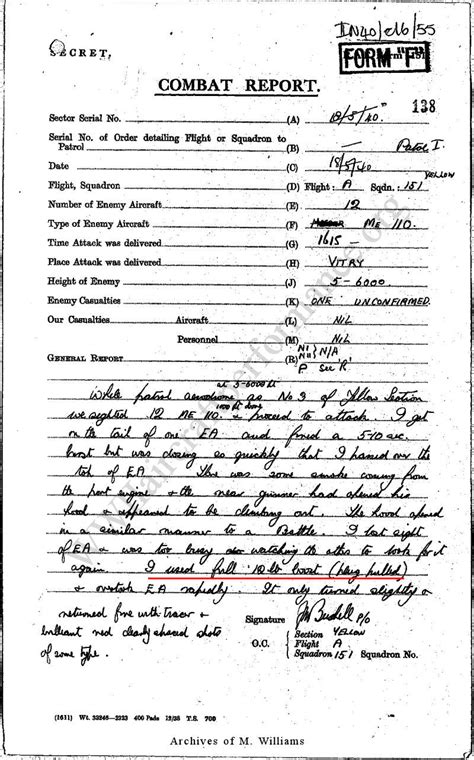 IN40/216/55
SECRET.
FORM "F"
COMBAT REPORT.
138
Sector Serial No. (A) 18/5/40.
Serial No. of Order detailing Flight or Squadron to
Patrol (B) Patrol I.
Date (C) 18/5/40
YELLOW
Flight, Squadron (D) Flight: A Sqdn.: 151
Number of Enemy Aircraft (E) 12
Type of Enemy Aircraft (F) ME 110.
Time Attack was delivered (G) 1615
Place Attack was delivered (H) VITRY
Height of Enemy (J) 5-6000.
Enemy Casualties (K) ONE UNCONFIRMED.
Our Casualties Aircraft (L) NIL
Personnel (M) NIL
GENERAL REPORT (R) N1 N11 } N/A
P See 'R'
at 5-6000 ft
While patrol aerodrome as No 3 of Yellow Section
we sighted 12 ME 110. & proceed to attack. I got
on the tail of one EA and fired a 5-10 sec.
burst but was closing so quickly that I passed over the
top of EA There was some smoke coming from
the port engine & the rear gunner had opened his
hood & appeared to be climbing out. The hood opened
in a similar manner to a Battle. I lost sight
of EA & was too busy watching the others to look for it
again. I used full 12 lb boost (plug pulled)
& overtook EA rapidly. It only turned slightly &
returned fire with tracer &
brilliant red clearly shaped shots
of some type.
Signature P/O
Section YELLOW
O.C. Flight A
Squadron 151 Squadron No.
(1611) Wt. 33246—2223 400 Pads 12/38 T.S. 700
Archives of M. Williams